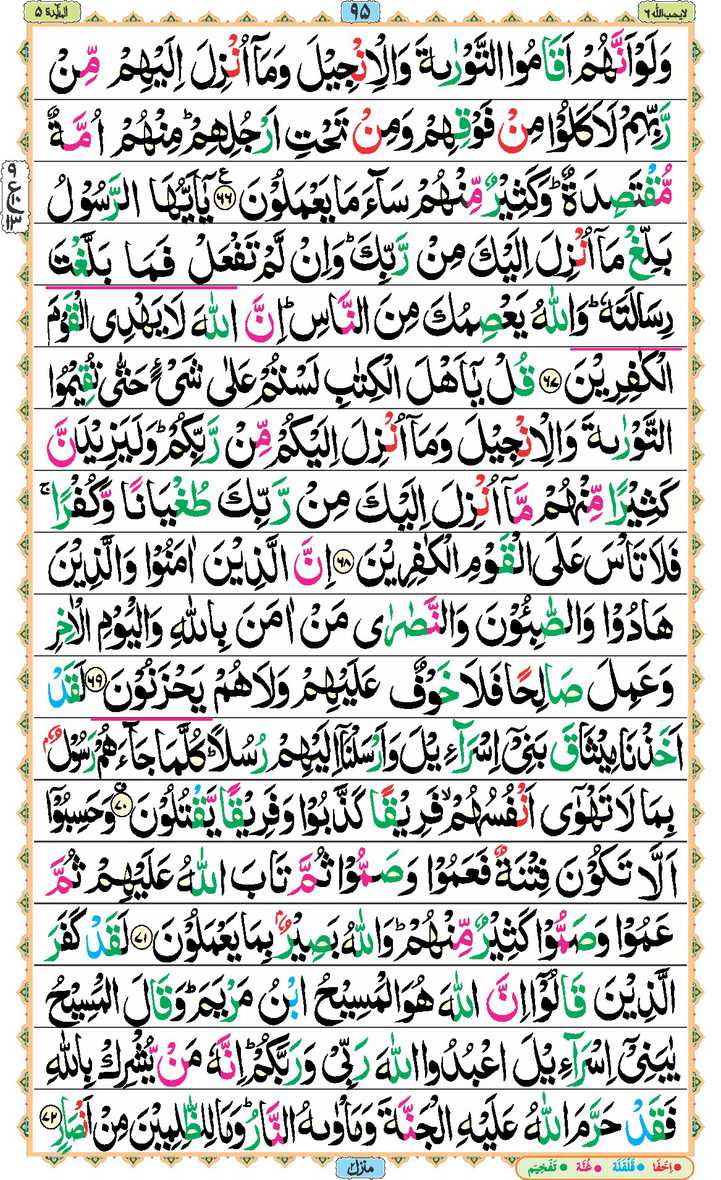 المآئدة ٥
٩٥
لایحب الله ٦
وَلَوۡ اَنَّهُمۡ اَقَامُوا التَّوۡرٰىةَ وَالۡاِنۡجِيۡلَ وَمَاۤ اُنۡزِلَ اِلَيۡهِمۡ مِّنۡ
رَّبِّهِمۡ لَاَكَلُوۡا مِنۡ فَوۡقِهِمۡ وَمِنۡ تَحۡتِ اَرۡجُلِهِمۡ‌ؕ مِنۡهُمۡ اُمَّةٌ
مُّقۡتَصِدَةٌ‌ ؕ وَكَثِيۡرٌ مِّنۡهُمۡ سَآءَ مَا يَعۡمَلُوۡنَ ﴿۶۶﴾ ع يٰۤاَيُّهَا الرَّسُوۡلُ
بَلِّغۡ مَاۤ اُنۡزِلَ اِلَيۡكَ مِنۡ رَّبِّكَ‌ ؕ وَاِنۡ لَّمۡ تَفۡعَلۡ فَمَا بَلَّغۡتَ
رِسَالَـتَهٗ‌ ؕ وَاللّٰهُ يَعۡصِمُكَ مِنَ النَّاسِ‌ ؕ اِنَّ اللّٰهَ لَا يَهۡدِى الۡقَوۡمَ
الۡـكٰفِرِيۡنَ ﴿۶۷﴾ قُلۡ يٰۤاَهۡلَ الۡـكِتٰبِ لَسۡتُمۡ عَلٰى شَىۡءٍ حَتّٰى تُقِيۡمُوا
التَّوۡرٰٮةَ وَالۡاِنۡجِيۡلَ وَمَاۤ اُنۡزِلَ اِلَيۡكُمۡ مِّنۡ رَّبِّكُمۡ‌ ؕ وَلَيَزِيۡدَنَّ
كَثِيۡرًا مِّنۡهُمۡ مَّاۤ اُنۡزِلَ اِلَيۡكَ مِنۡ رَّبِّكَ طُغۡيَانًا وَّكُفۡرًا‌ ۚ
فَلَا تَاۡسَ عَلَى الۡقَوۡمِ الۡكٰفِرِيۡنَ ﴿۶۸﴾ اِنَّ الَّذِيۡنَ اٰمَنُوۡا وَالَّذِيۡنَ
هَادُوۡا وَالصّٰبِـُٔوۡنَ وَالنَّصٰرٰى مَنۡ اٰمَنَ بِاللّٰهِ وَالۡيَوۡمِ الۡاٰخِرِ
وَعَمِلَ صَالِحًـا فَلَا خَوۡفٌ عَلَيۡهِمۡ وَلَا هُمۡ يَحۡزَنُوۡنَ ﴿۶۹﴾ لَقَدۡ
اَخَذۡنَا مِيۡثَاقَ بَنِىۡۤ اِسۡرَآءِيۡلَ وَاَرۡسَلۡنَاۤ اِلَيۡهِمۡ رُسُلًا ؕ كُلَّمَا جَآءَهُمۡ رَسُوۡلٌ ۢ
بِمَا لَا تَهۡوٰٓى اَنۡفُسُهُمۡ ۙ فَرِيۡقًا كَذَّبُوۡا وَفَرِيۡقًا يَّقۡتُلُوۡنَ ﴿۷۰﴾ وَحَسِبُوۡۤا
اَلَّا تَكُوۡنَ فِتۡنَةٌ فَعَمُوۡا وَصَمُّوۡا ثُمَّ تَابَ اللّٰهُ عَلَيۡهِمۡ ثُمَّ
عَمُوۡا وَصَمُّوۡا كَثِيۡرٌ مِّنۡهُمۡ‌ؕ وَاللّٰهُ بَصِيۡرٌۢ بِمَا يَعۡمَلُوۡنَ ﴿۷۱﴾ لَقَدۡ كَفَرَ
الَّذِيۡنَ قَالُوۡۤا اِنَّ اللّٰهَ هُوَ الۡمَسِيۡحُ ابۡنُ مَرۡيَمَ‌ ؕ وَقَالَ الۡمَسِيۡحُ
يٰبَنِىۡۤ اِسۡرَآءِيۡلَ اعۡبُدُوا اللّٰهَ رَبِّىۡ وَرَبَّكُمۡ‌ ؕ اِنَّهٗ مَنۡ يُّشۡرِكۡ بِاللّٰهِ
فَقَدۡ حَرَّمَ اللّٰهُ عَلَيۡهِ الۡجَـنَّةَ وَمَاۡوٰٮهُ النَّارُ‌ ؕ وَمَا لِلظّٰلِمِيۡنَ مِنۡ اَنۡصَارٍ ﴿۷۲﴾
منزل ٢
اِخفَا قَلْقَلَة غُنَّة تَفْخِيْم